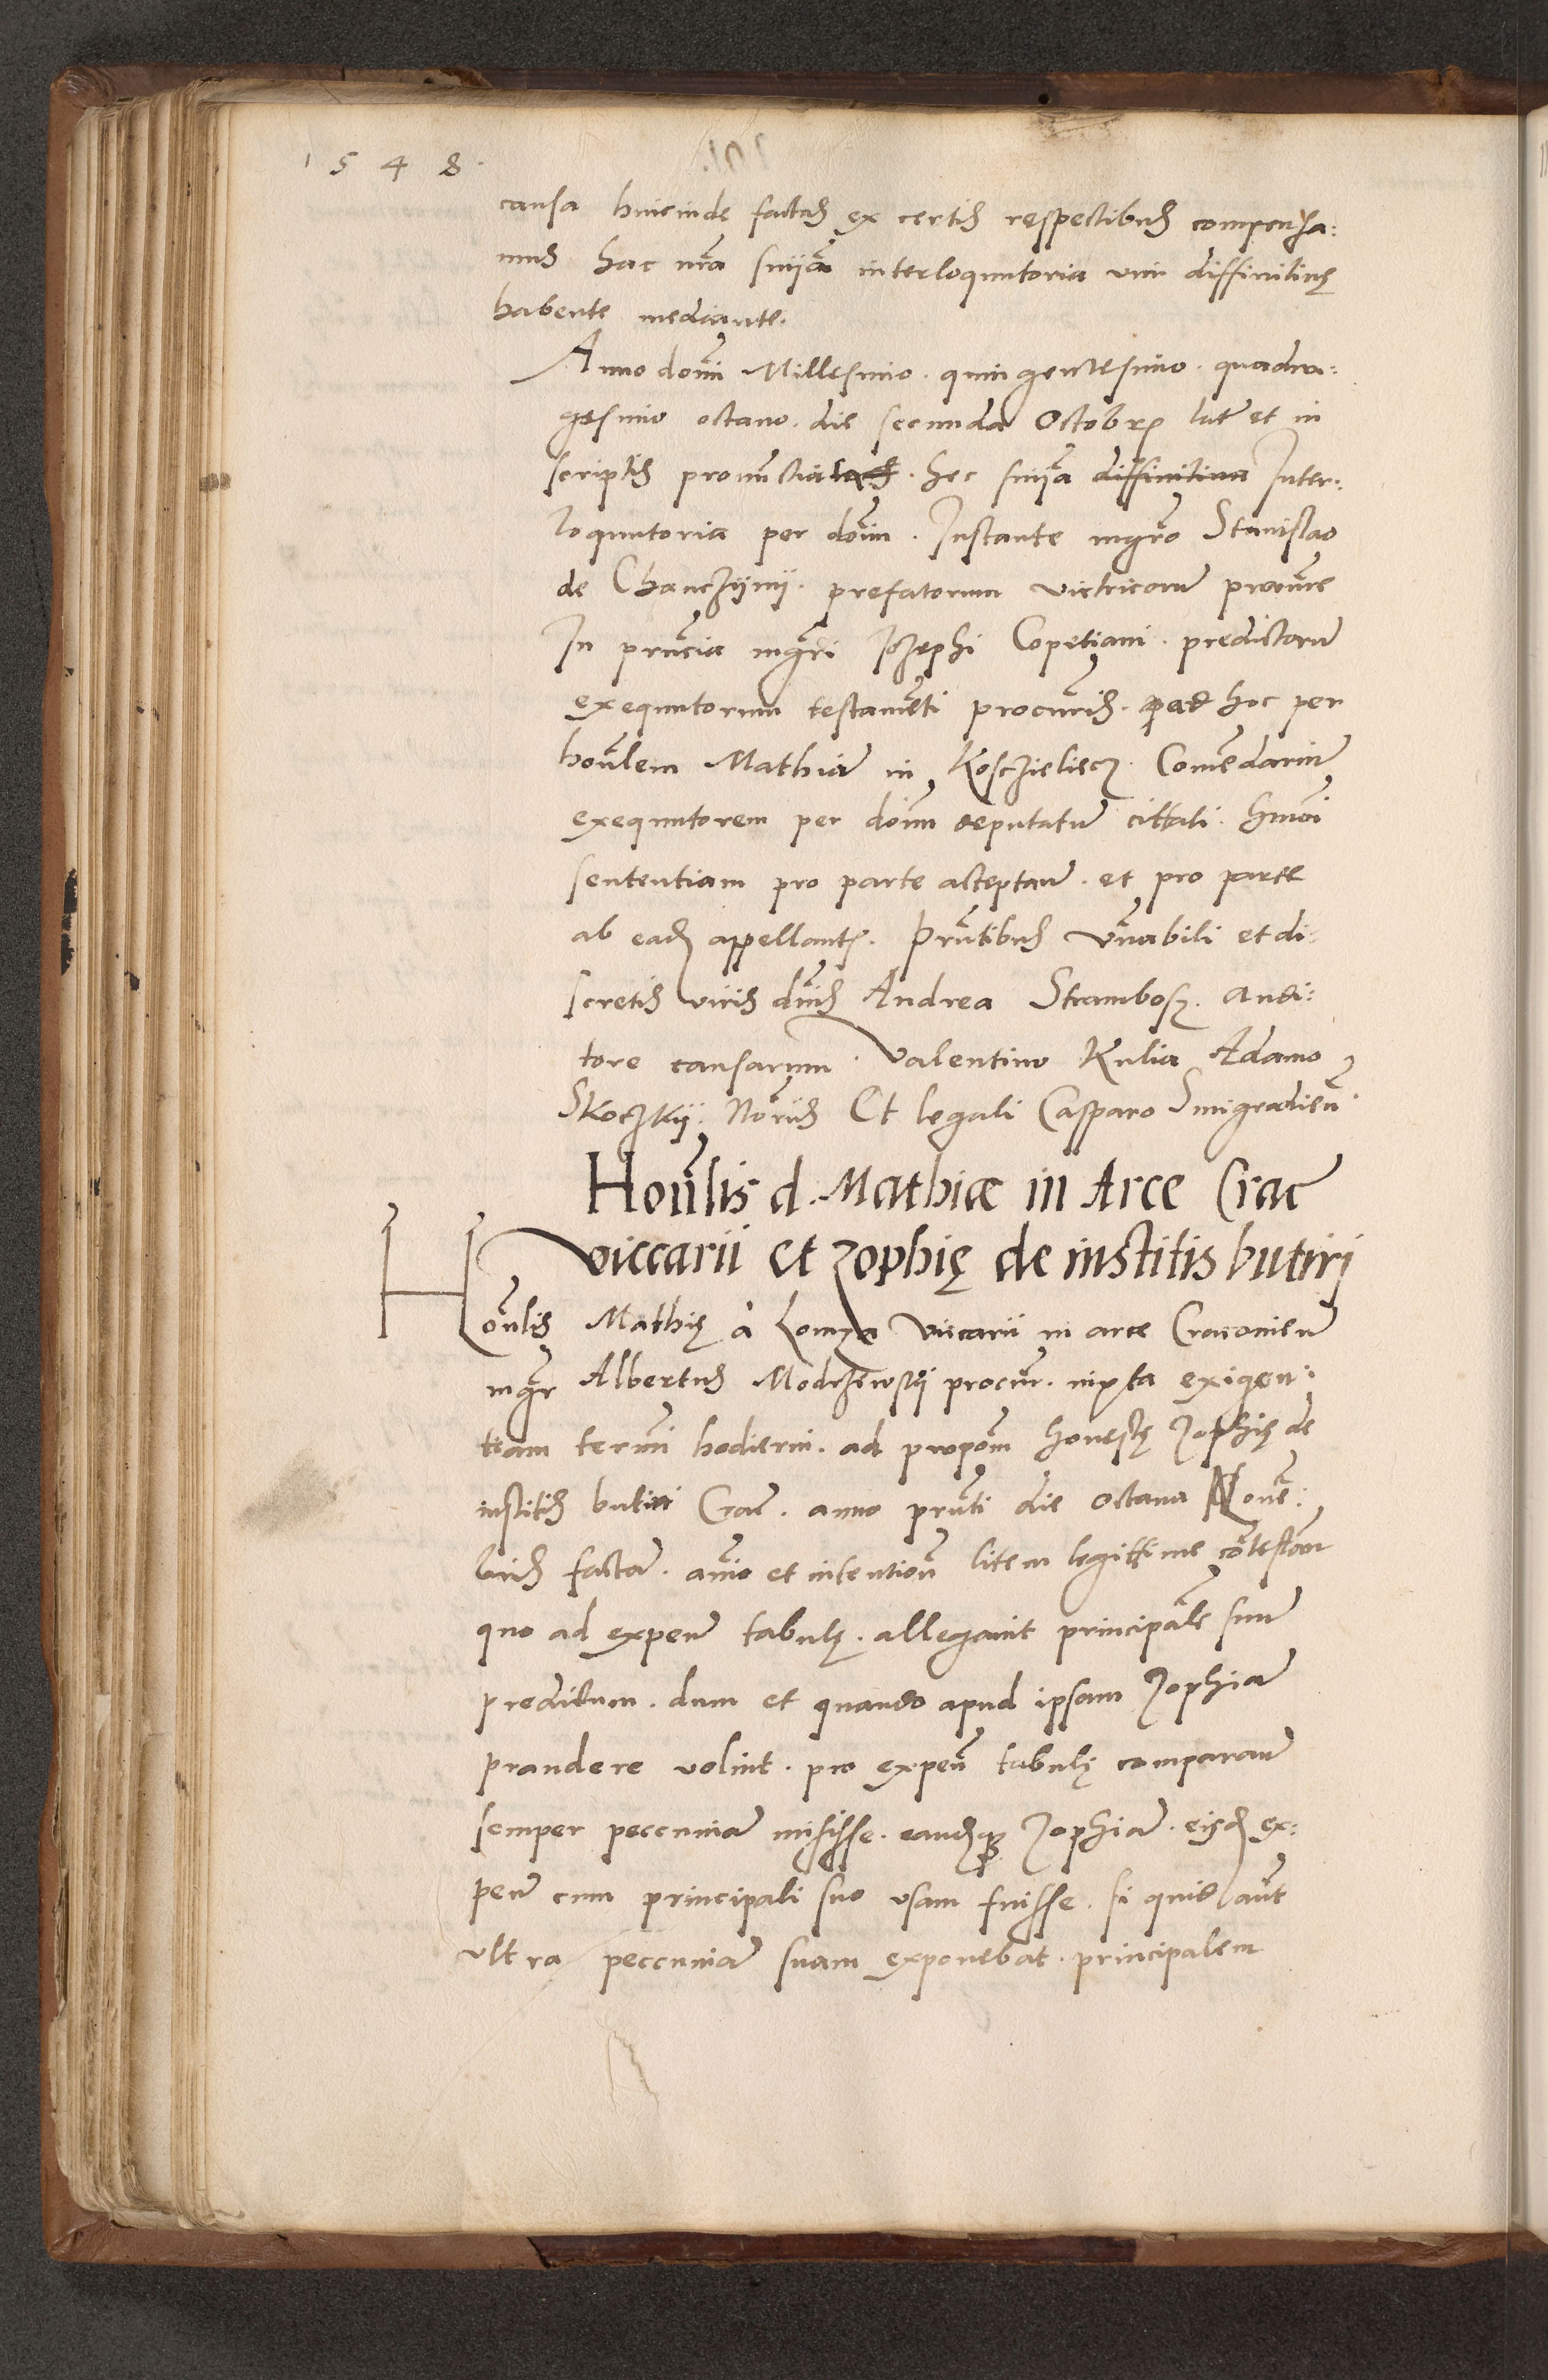 1548.
causa hincinde factas ex certis respectibus compensa:
mus hac nra snīja interloquutoria vim diffinitiuę
habente mediante.
Anno domi Millesimo. quingentesimo. quadra:
gesimo octauo. die secunda Octobr lat et in
scriptis pronunciata. hec snīja diffinitiua Inter:
loquutoria per dom. Instante mgro Stanislao
de Chanczijnij. prefatorum victricorum
In prncia mgri Jozephi Copetiani. predictorum
exequutorum testamēti procuris. ad hoc per
honīlem Mathiam in Kosczielecz. Comēdarium
exequutorem per dom deputatum cittati. hmōi
sententiam pro parte acceptan. et pro parte
ab eadem appellant. Prntibus vnabili et di:
scretis viris dnis Andrea Strambosz. audi:
tore causarum. Valentino Kulia Adamo
Skoczkij. Noriis Et legali Casparo Smigradien
Honīlis d. Mathiæ in Arce Crac
viccarii et zophię de institis butiri
Honīlis Mathię à Lomza viccarii in arce Cracouien
mgr Albertus Modrzewskij procur. iuxta exigen:
tiam termi hodierni. ad propom honestę zophię de
institis butiri Crac. anno prnti die octaua Noue:
bris factam. animo et intentione litem legittime cōtestan
quo ad expen tabulę. allegauit principale suum
predictum. dum et quando apud ipsam zophiam
prandere voluit. pro expen tabulę comparan
semper peccuniam misisse. eandemque zophiam. eisdem ex:
pen cum principali suo vsam fuisse. si quid aut
vltra peccuniam suam exponebat. principalem